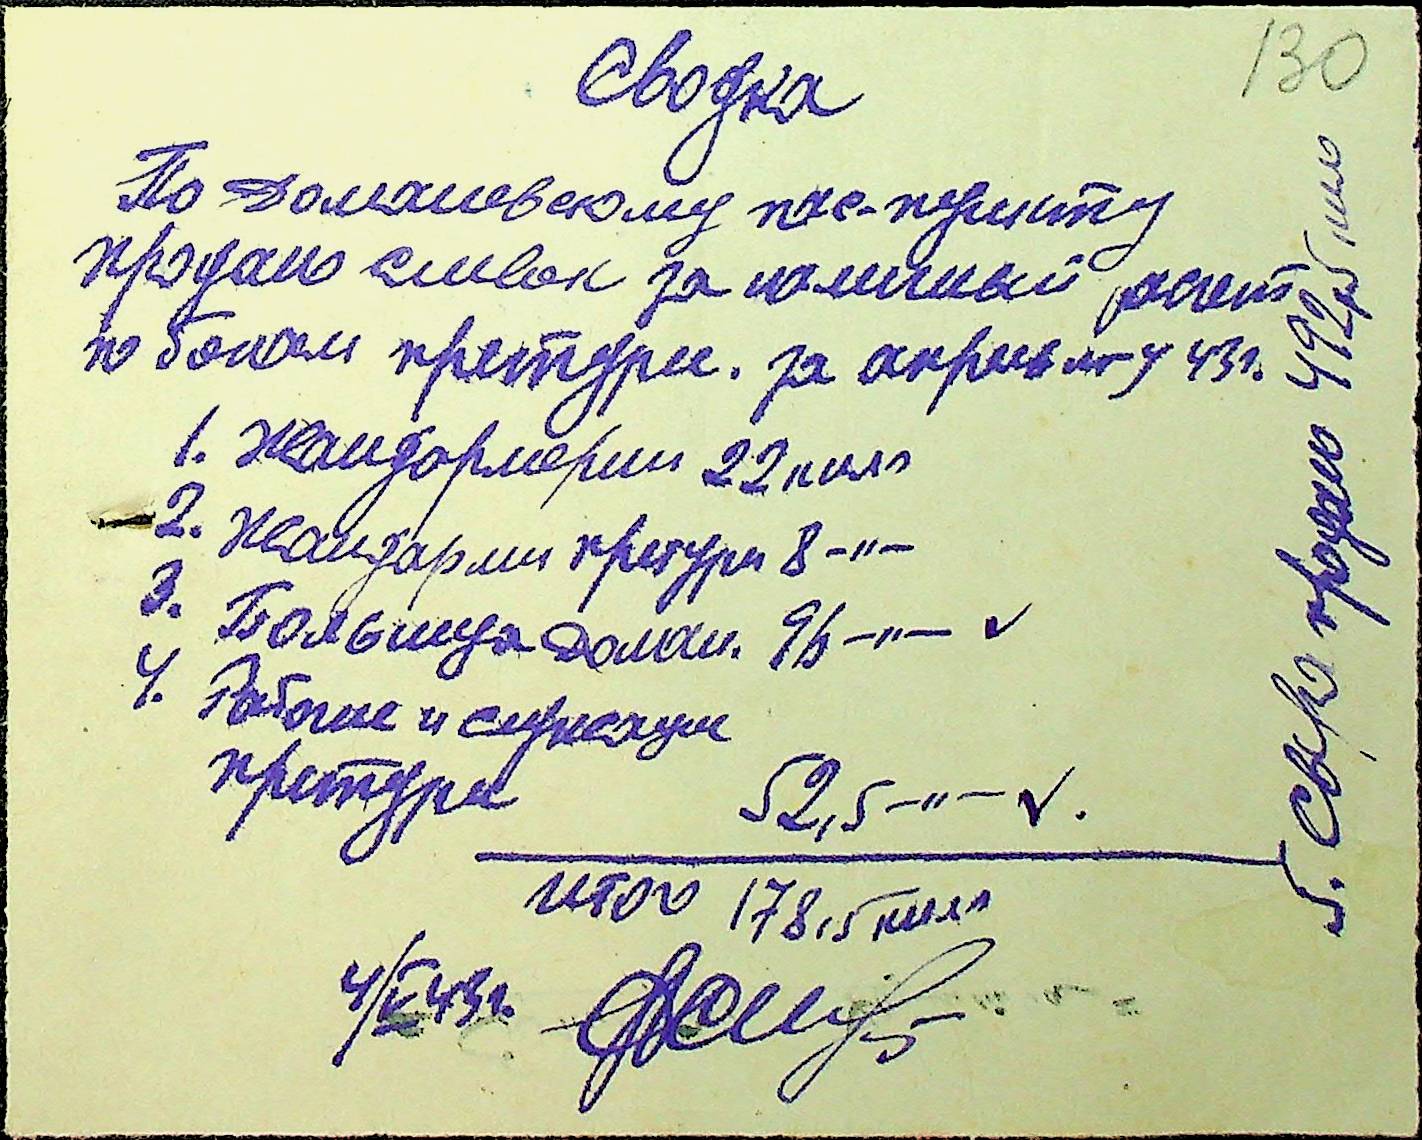 130
Сводка
По Домашевскому пас-пункту
продано сливок за наличный расчет
по бонам претури. за апрель м-ц 43 г.
1. Жандармерии 22 кило
2. Жандарми претури 8 -"-
3. Больница Домаш. 96 -"- ✓
4. Рабочие и служащие
претури 52,5 -"- ✓.
итого 178,5 кило
4/V 43 г.
5. Сыра продано 492,5 кило